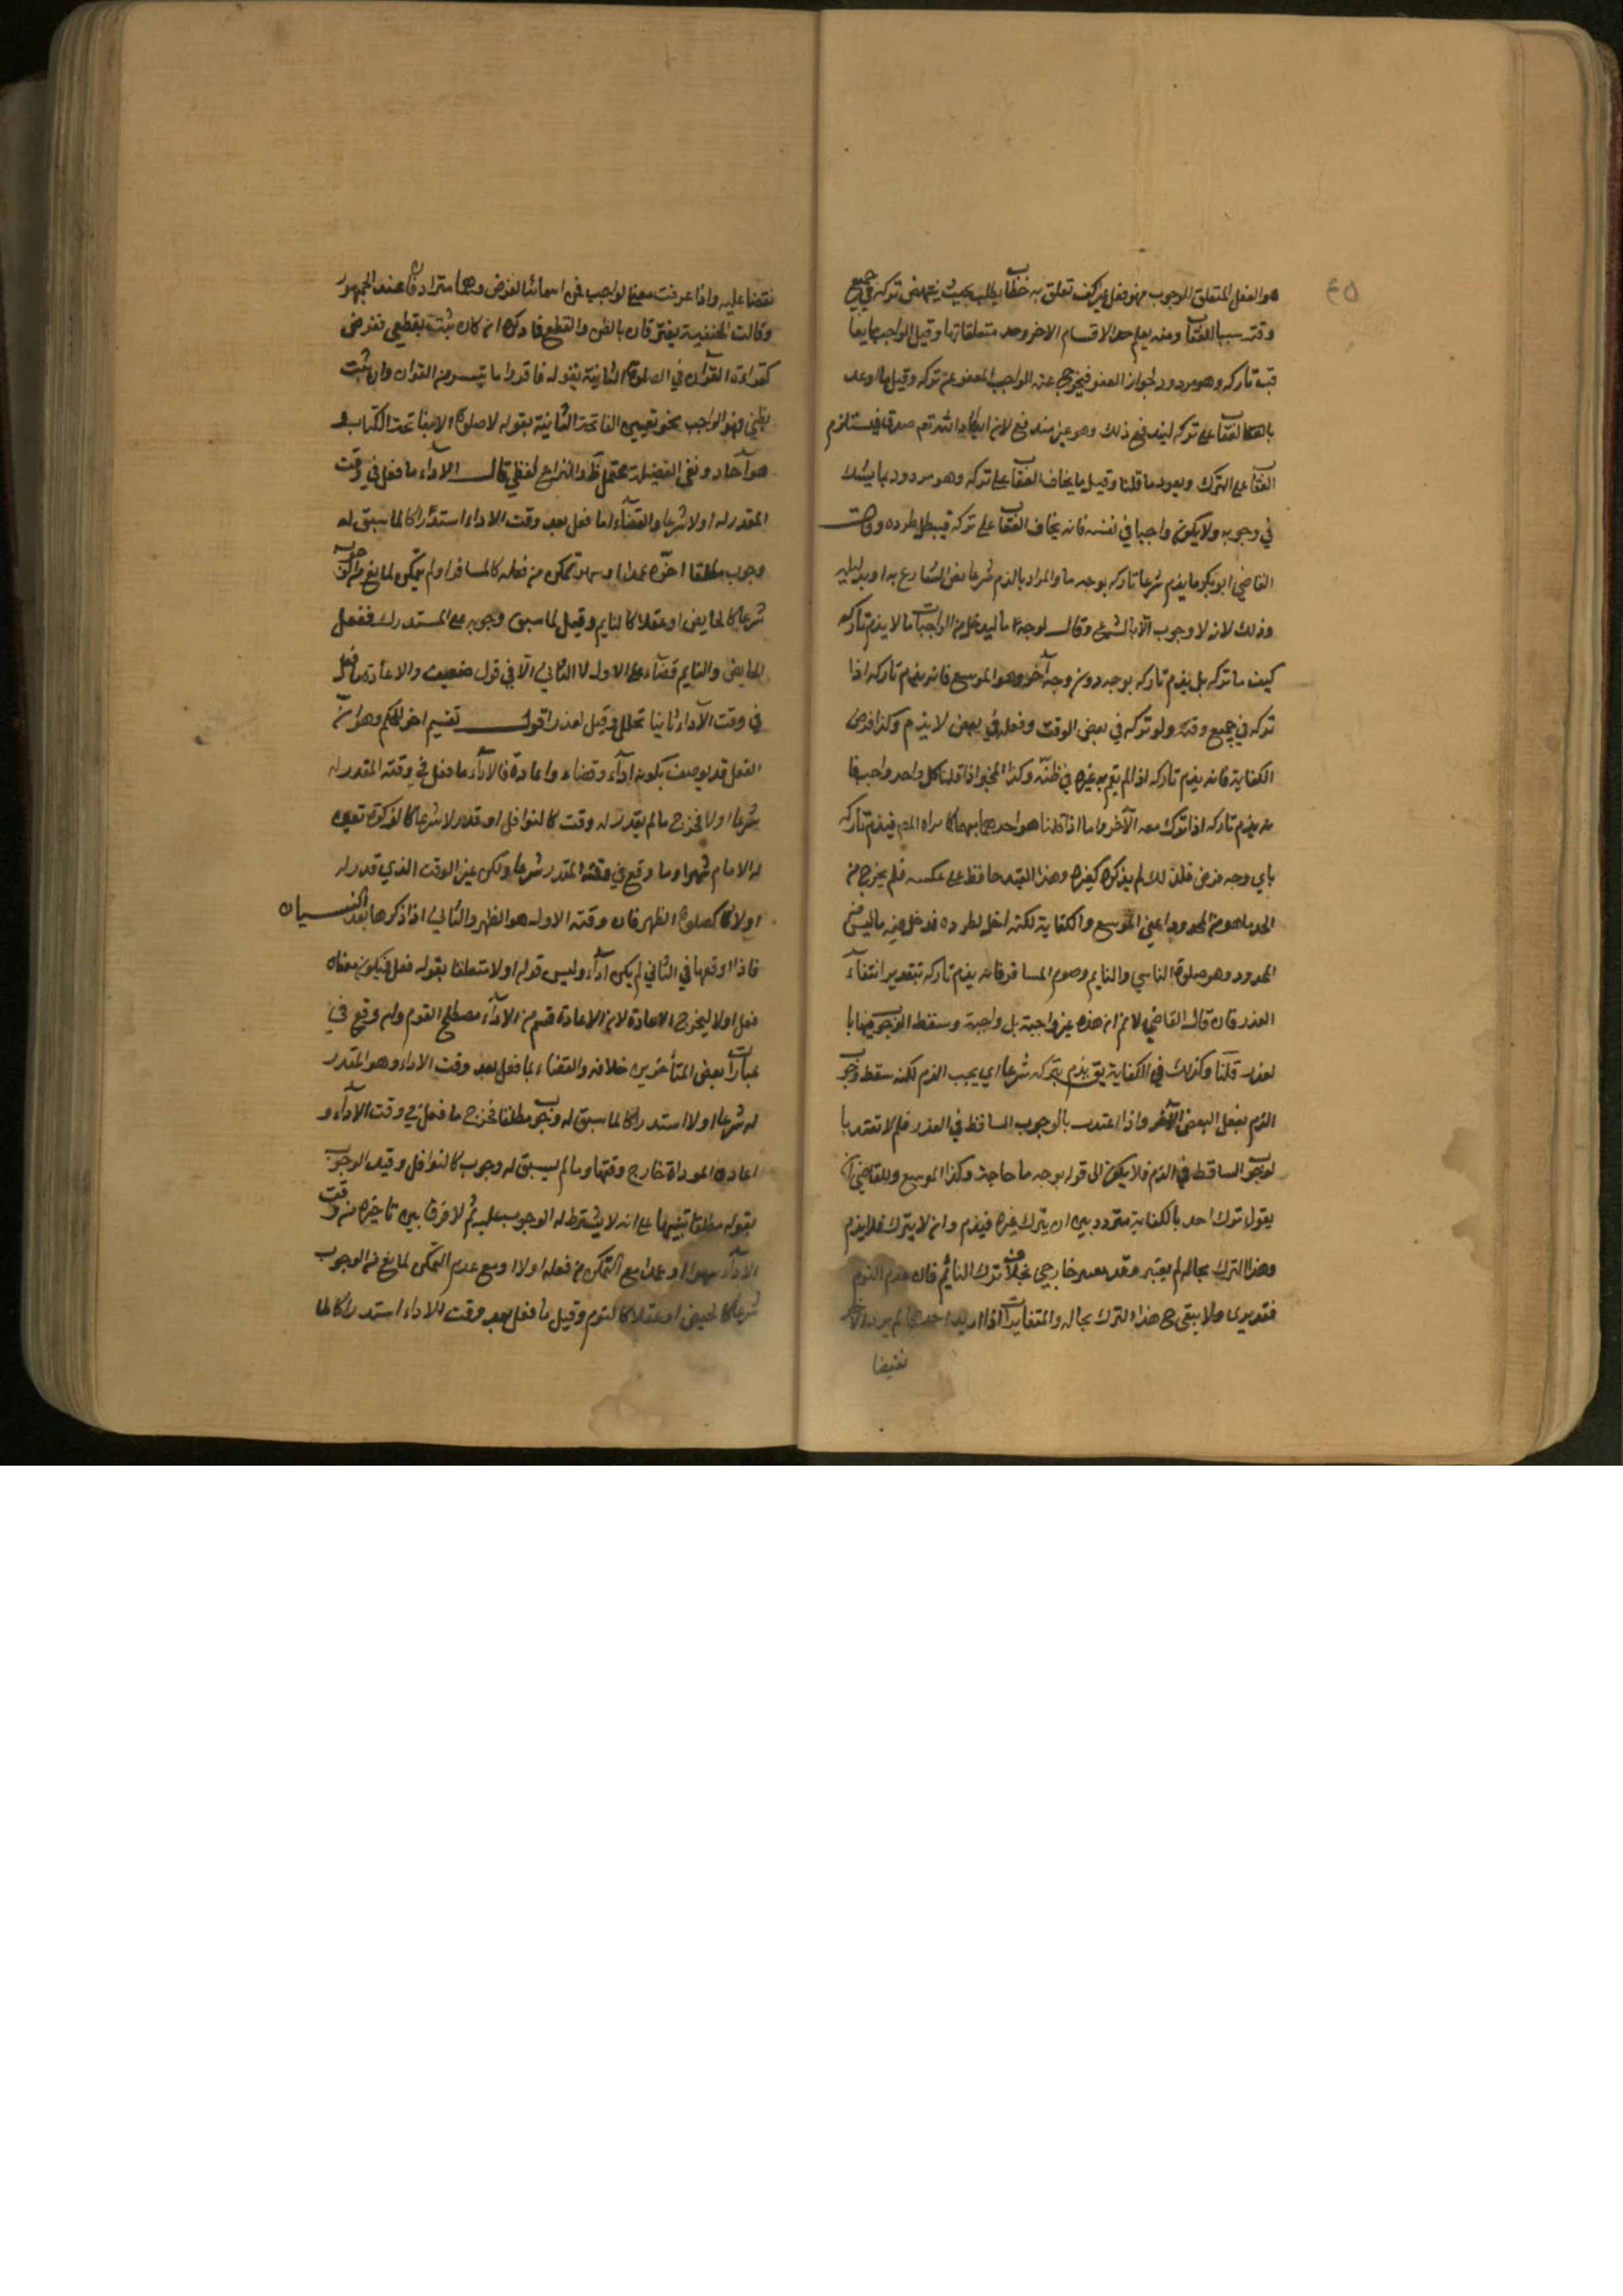 هو الفعل المتعلق للوجوب فهو فعل غير كف تعلق به خطاب بطلب بحيث ينتهض تركه في جميع
وقته سببا للعقاب ومنه يعلم حد الاقسام الاخر وحد متعلقاتها وقيل الواجب ما يعا
قب تاركه وهو مردود لجواز العفو فيخرج عنه الواجب المعفو عن تركه وقيل ما اوعد
بالعقاب على تركه ليندفع ذلك وهو غير مندفع لان ايعاد الله تعم صدق فيستلزم
العقاب على الترك ويعود ما قلنا وقيل ما يخاف العقاب على تركه وهو مردود بما يشك
في وجوبه ولا يكون واجبا في نفسه فانه يخاف العقاب على تركه فيبطل طرده وقال
القاضي ابو بكر ما يذم شرعا تاركه بوجه ما والمراد بالذم شرعا نص الشارع به او بدليله
وذلك لانه لا وجوب الا بالشرع وقال بوجه ما ليدخل من الواجبات ما لا يذم تاركه
كيف ما تركه بل يذم تاركه بوجه دون وجه آخر وهو الموسع فانه يذم تاركه اذا
تركه في جميع وقته ولو تركه في بعض الوقت وفعله في بعض لا يذم وكذا فرض
الكفاية فانه يذم تاركه اذا لم يقم به غيره في ظنه وكذا المخير اذا قلنا كل واحد واجب فا
نه يذم تاركه اذا ترك معه الآخر واما اذا قلنا هو احدهما مبهما كما يراه المص فيذم تاركه
باي وجه فرض فلذلك لم يذكره كغيره وهذا القيد حافظ على عكسه فلم يخرج من
الحد ما هو من المحدود اعني الموسع والكفاية لكنه اخل بطرده فدخل فيه ما ليس من
المحدود وهو صلوة الناسي والنايم وصوم المسافر فانه يذم تاركه بتقدير انتفاء
العذر فان قال القاضي لا نم ان هذه غير واجبة بل واجبة وسقط الوجوب فيها با
لعذر قلنا وكذلك في الكفاية يق يذم بتركه شرعا اي يجب الذم لكنه سقط وجوب
الذم بفعل البعض الآخر واذا اعتدت بالوجوب الساقط في العذر فلم لا تعتد با
لوجوب الساقط في الذم فلا يكون الى قوله بوجه ما حاجة وكذا الموسع وللقاضي ان
يقول ترك احد بالكفاية متردد بين ان يترك غيره فيذم وان لا يترك فلا يذم
وهذا الترك بحاله لم يعتبر خارجي بخلاف ترك النائم فان عدم النوم
فتقديري ولا يبقى ح هذا الترك بحاله والمتغايران اذا اريد احدهما لم يرد الآخر
نقيضا
نقضا عليه واذا عرفت معنى الواجب فمن اسمائنا الفرض وهما مترادفان عند الجمهور
وقالت الحنفية يفترقان بالظن والقطع فما ذكره ان كان ثبت بقطعي ففرض
كقراءة القرآن في الصلوة الثابتة بقوله فاقرؤا ما تيسر من القران وان ثبت
بظني فهو الواجب نحو تعيين الفاتحة الثابتة بقوله لا صلوة الا بفاتحة الكتاب و
هو آحاد ونفي الفضيلة محتمل ظ والنزاع لفظي قال الآداء ما فعل في وقت
المقدر له اولا شرعا والقضاء ما فعل بعد وقت الاداء استدراكا لما سبق له
وجوب مطلقا اخره عمدا او سهوا تمكن من فعله كالمسافر او لم يتمكن لمانع من الوجوب
شرعا كالحايض او عقلا كالنايم وقيل لما سبق وجوبه على المستدرك ففعل
الحايض والنايم قضاء على الاول لا الثاني الا في قول ضعيف والاعادة ما فعل
في وقت الآداء ثانيا لخلل وقيل لعذر اقول تقسيم اخر للحكم وهو ان
الفعل قد يوصف بكونه اداء وقضاء واعادة فالاداء ما فعل في وقته المقدر له
شرعا اولا فخرج ما لم يقدر له وقت كالنوافل او قدر لا شرعا كالزكوة تعين
له الامام شهرا وما وقع في وقته المقدر شرعا ولكن غير الوقت الذي قدر له
اولا كصلوة الظهر فان وقته الاول هو الظهر والثاني اذا ذكرها بعد النسيان
فاذا اوقعها في الثاني لم يكن اداء وليس قوله اولا متعلقا بقوله فعل فيكون معناه
فعل اولا ليخرج الاعادة لان الاعادة قسم من الاداء في مصطلح القوم وان وقع في
عبارات بعض المتأخرين خلافه والقضاء ما فعل بعد وقت الاداء وهو المقدر
له شرعا اولا استدراكا لما سبق له وجوب مطلقا فخرج ما فعل في وقت الآداء و
اعادة المؤداة خارج وقتها وما لم يسبق له وجوب كالنوافل وقيد الوجوب
بقوله مطلقا تنبيها على انه لا يشترط له الوجوب عليه ثم لا فرق بين تاخيره من وقت
الاداء سهوا او عمدا مع التمكن من فعله اولا او مع عدم التمكن لمانع من الوجوب
شرعا كالحيض او عقلا كالنوم وقيل ما فعل بعد وقت الاداء استدراكا لما